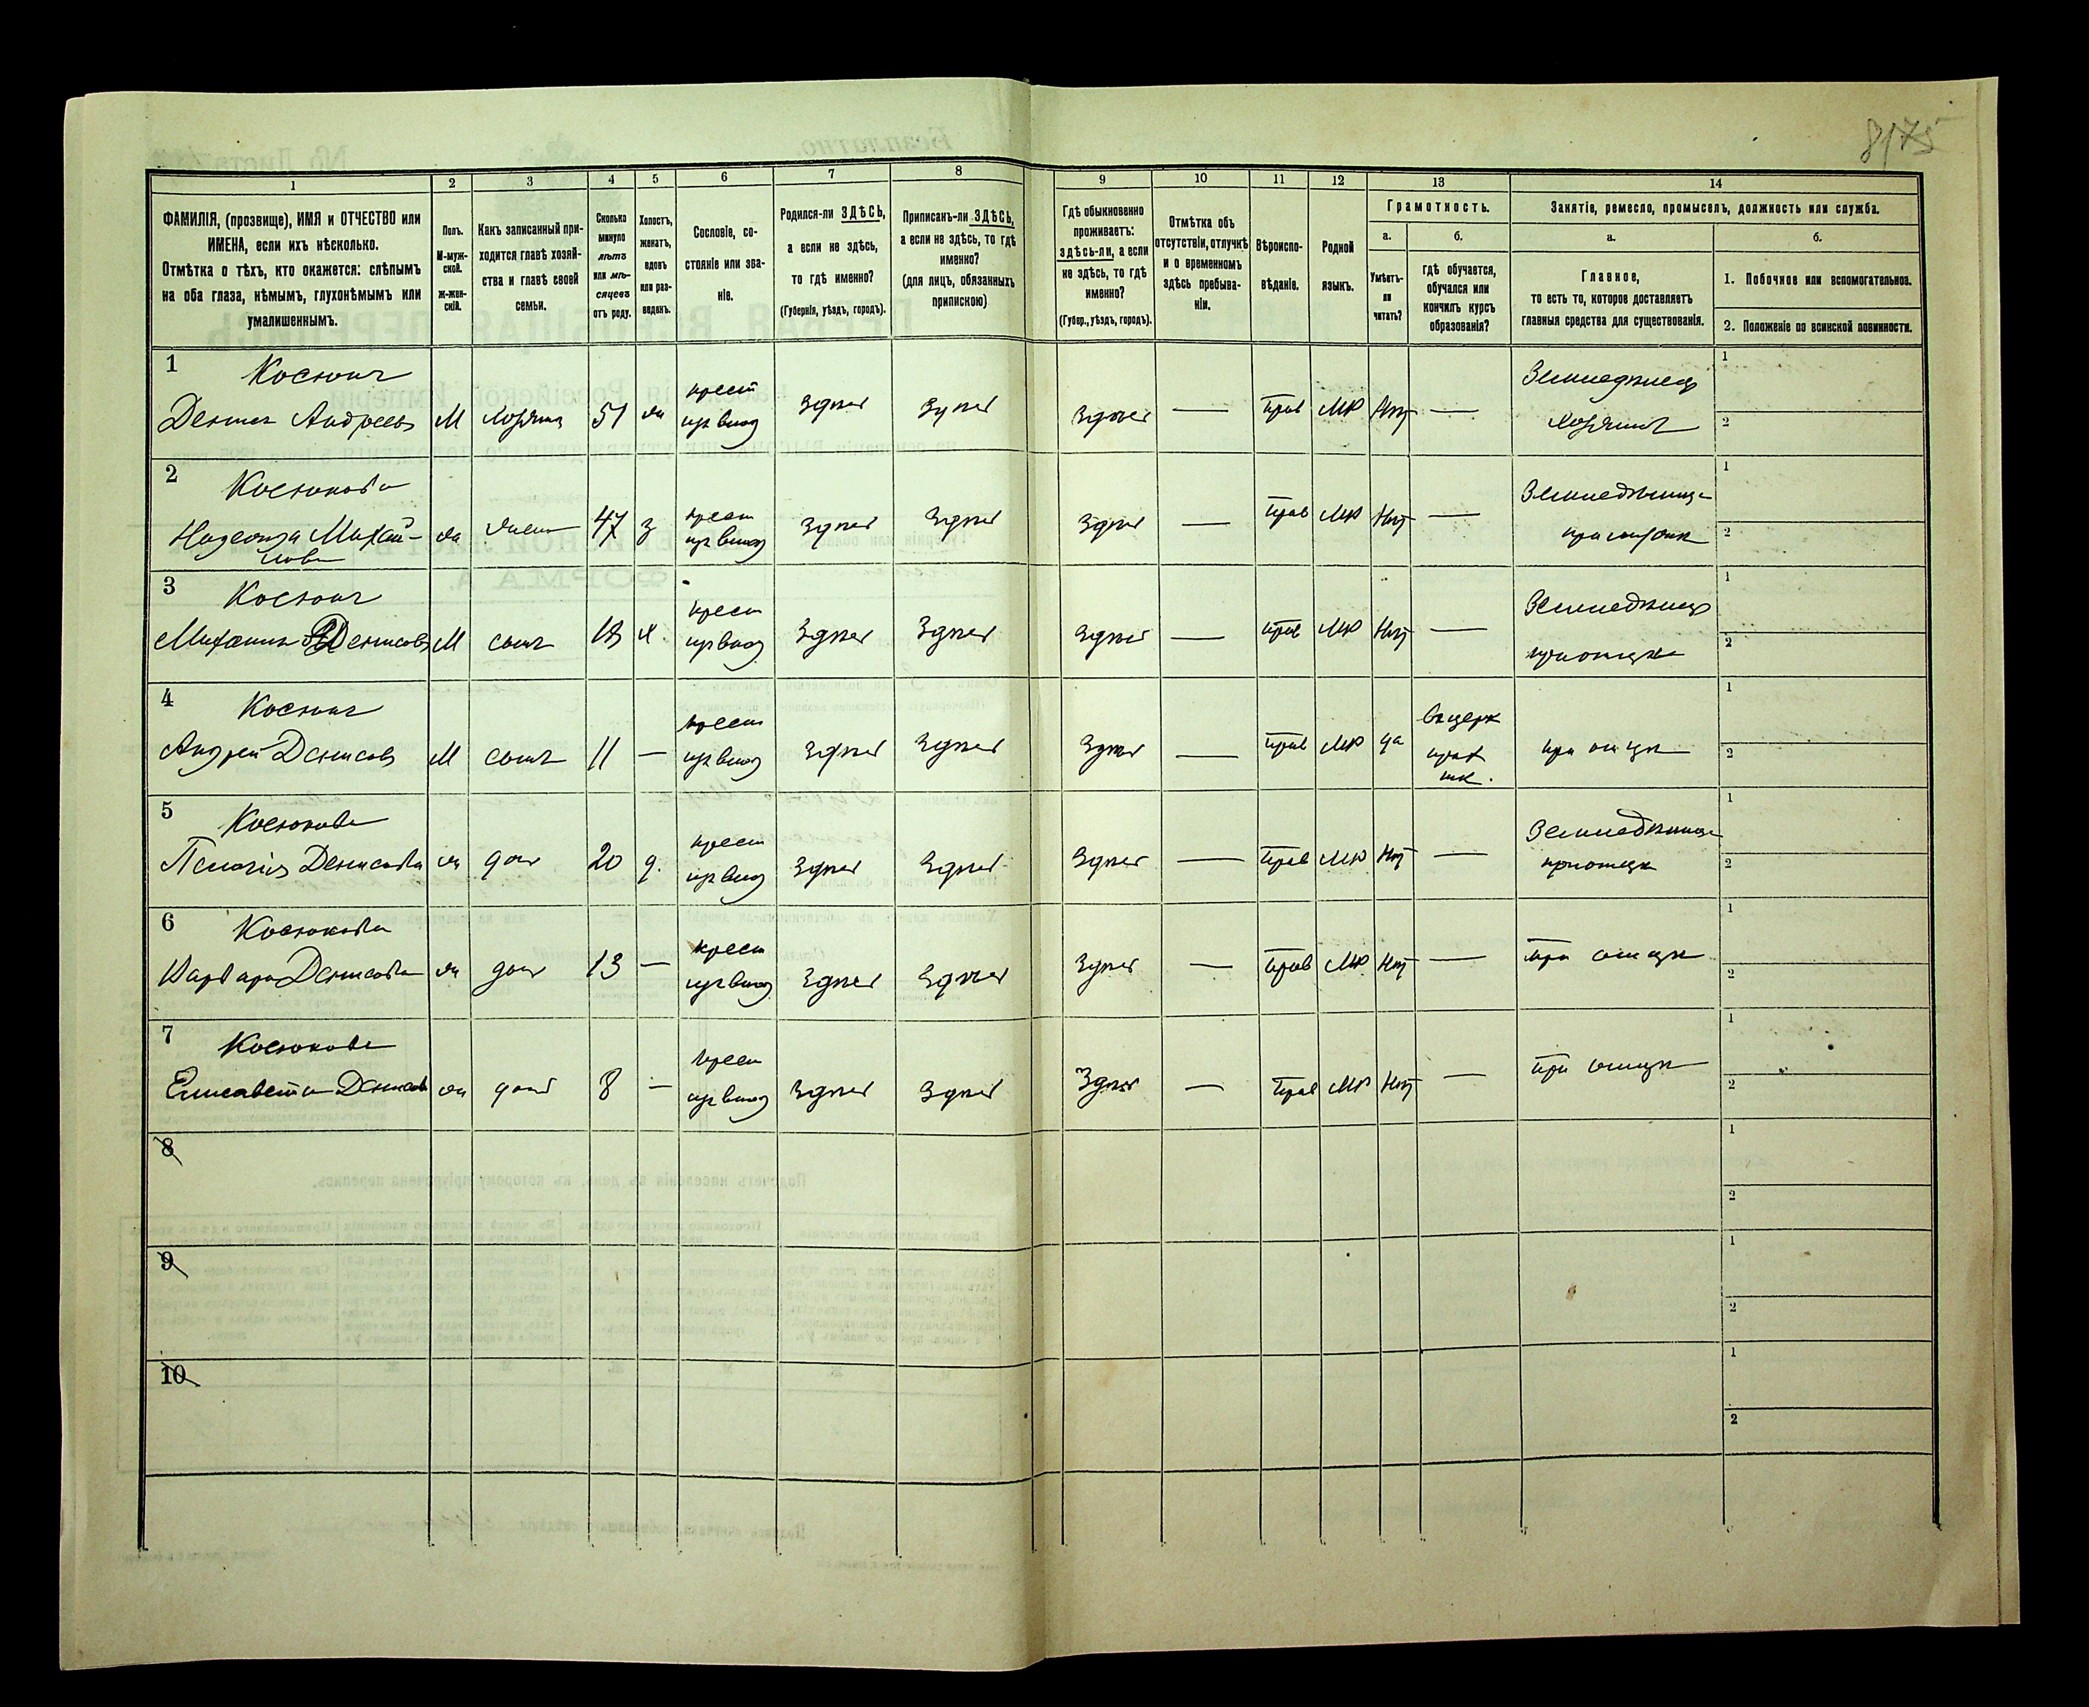 8175
1
2
3
4
5
6
7
8
9
10
11
12
13
14
ФАМИЛІЯ, (прозвище), ИМЯ и ОТЧЕСТВО или
ИМЕНА, если ихъ нѣсколько.
Отмѣтка о тѣхъ, кто окажется: слѣпымъ
на оба глаза, нѣмымъ, глухонѣмымъ или
умалишеннымъ.
Полъ.
М-муж-
ской.
Ж-жен-
скій.
Какъ записанный при-
ходится главѣ хозяй-
ства и главѣ своей
семьи.
Сколько
минуло
лѣтъ
или мѣ-
сяцевъ
отъ роду.
Холостъ,
женатъ,
вдовъ
или раз-
веденъ.
Сословіе, со-
стояніе или зва-
ніе.
Родился-ли ЗДѢСЬ,
а если не здѣсь,
то гдѣ именно?
(Губернія, уѣздъ, городъ).
Приписанъ-ли ЗДѢСЬ,
а если не здѣсь, то гдѣ
именно?
(для лицъ, обязанныхъ
припискою)
Гдѣ обыкновенно
проживаетъ:
здѣсь-ли, а если
не здѣсь, то гдѣ
именно?
(Губер., уѣздъ, городъ).
Отмѣтка объ
отсутствіи, отлучкѣ
и о временномъ
здѣсь пребыва-
ніи.
Вѣроиспо-
вѣданіе.
Родной
языкъ.
Грамотность.
а.
Умѣетъ-
ли
читать?
б.
гдѣ обучается,
обучался или
кончилъ курсъ
образованія?
Занятіе, ремесло, промыселъ, должность или служба.
а.
Главное,
то есть то, которое доставляетъ
главныя средства для существованія.
б.
1. Побочное или вспомогательное.
2. Положеніе по воинской повинности.
1 Косюкъ
Денисъ Андреевъ М хозяинъ 51 жн крест из влад здѣсь здѣсь здѣсь — прав МР Нѣт — Земледѣлец хозяинъ 1 2
2 Косюкова
Надежда Михай-
лова жн жена 47 з крест из влад здѣсь здѣсь здѣсь — прав МР Нѣт — 1 2
3 Косюкъ
Михаилъ Денисовъ М сынъ 18 х. крест из влад здѣсь здѣсь здѣсь — прав МР Нѣт — Земледѣлец при отцѣ 1 2
4 Косюкъ
Андрей Денисовъ М сынъ 11 — крест из влад здѣсь здѣсь здѣсь — прав МР да въ церк прих шк. при отцѣ 1 2
5 Косюкова
Пелагія Денисова жн доч 20 д. крест из влад здѣсь здѣсь здѣсь — прав МР Нѣт — Земледѣлица при отцѣ 1 2
6 Косюкова
Варвара Денисова жн доч 13 — крест из влад здѣсь здѣсь здѣсь — прав МР Нѣт — при отцѣ 1 2
7 Косюкова
Елисавета Денисов жн доч 8 — крест из влад здѣсь здѣсь здѣсь — прав МР Нѣт — при отцѣ 1 2
8 1 2
9 1 2
10 1 2